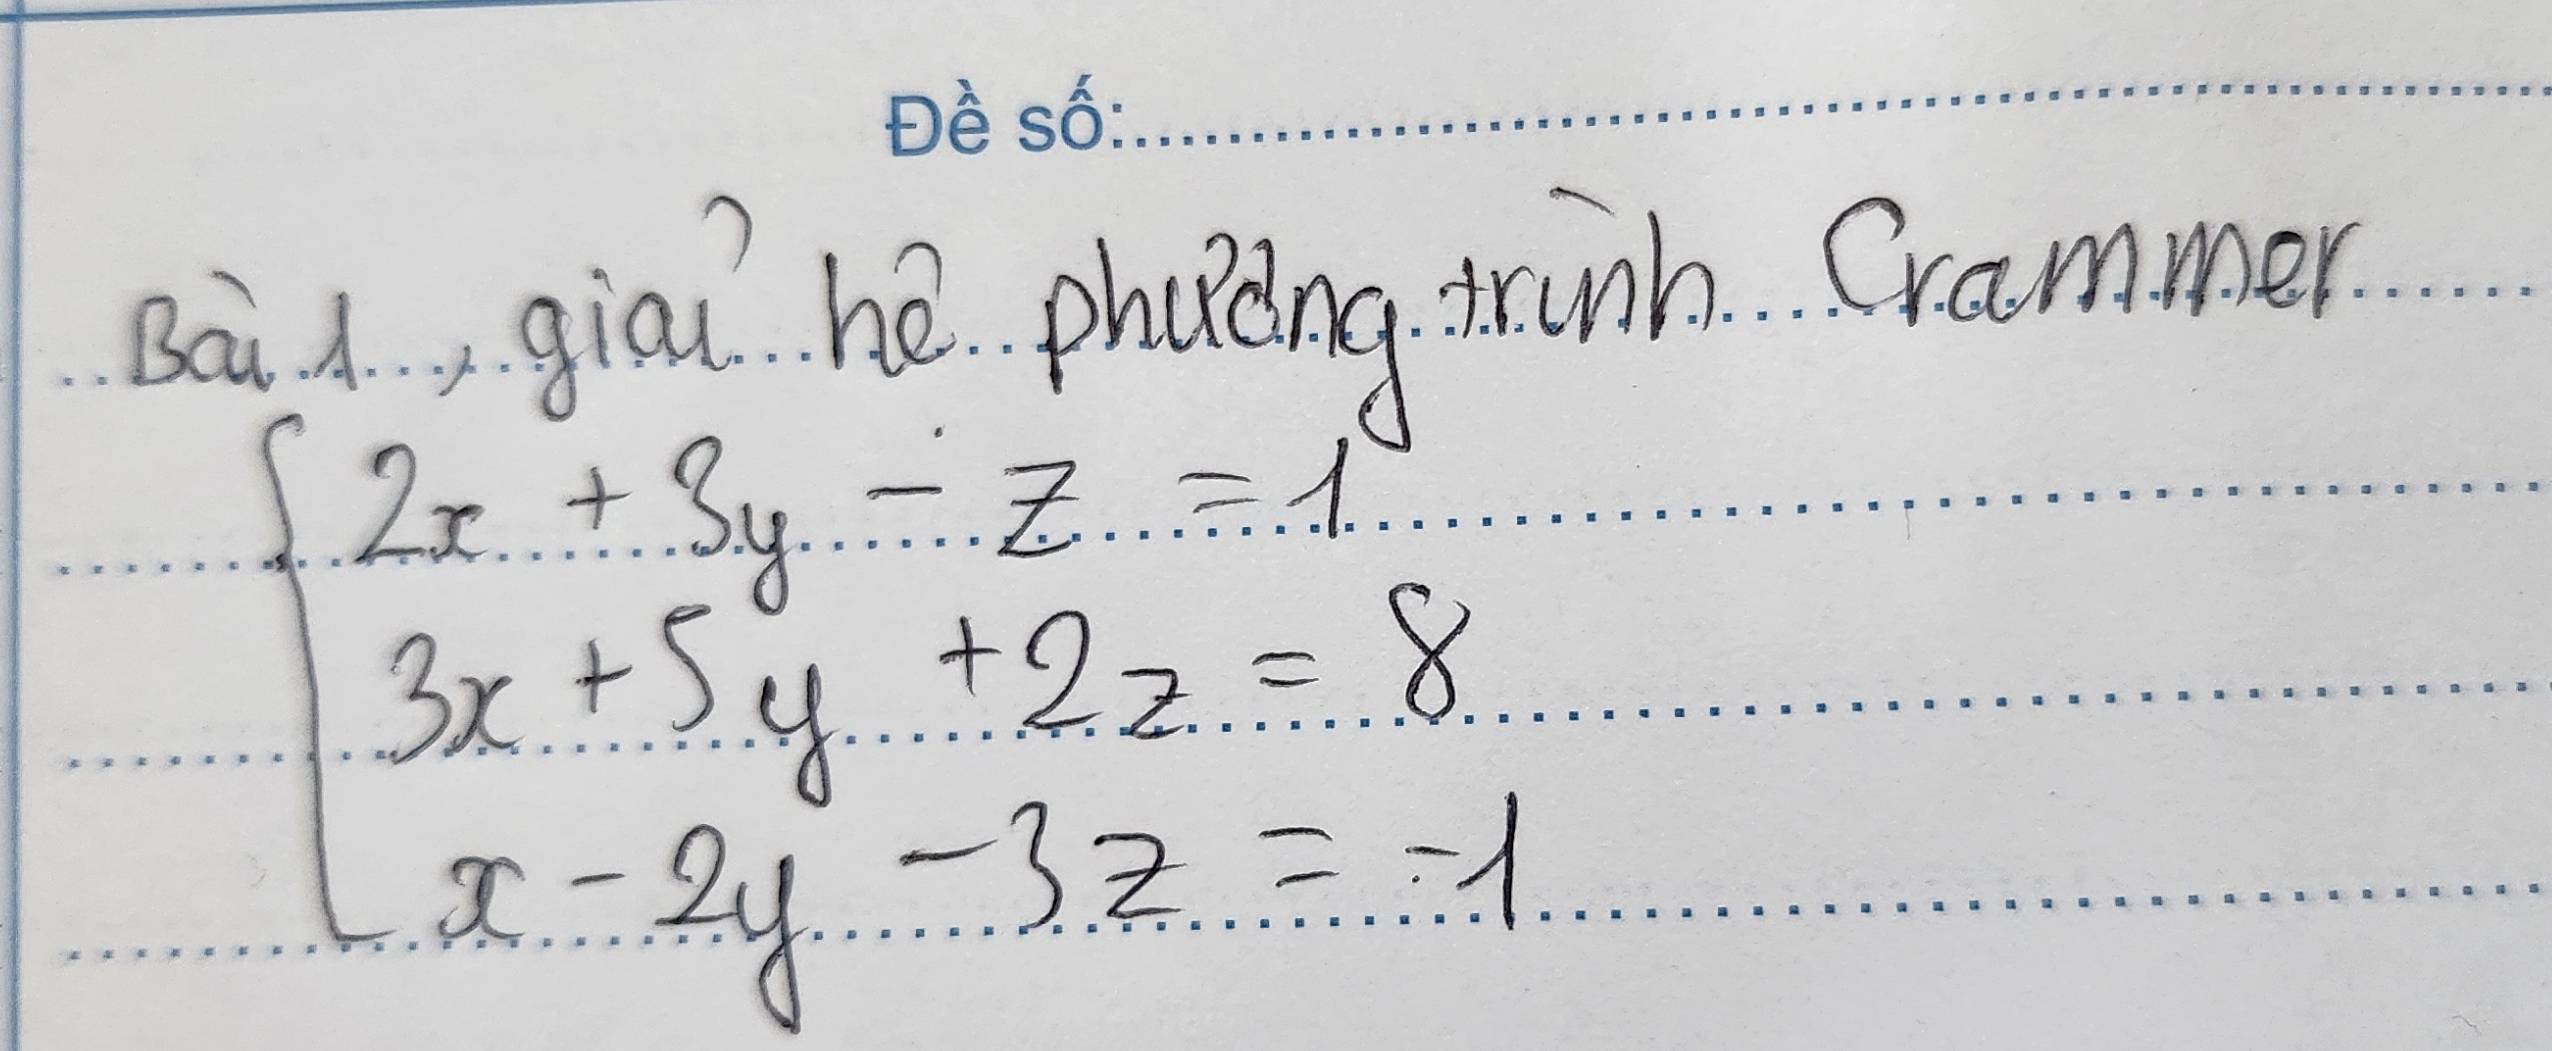 Đề số:
Bài 1, giải hệ phương trình Crammer
2x + 3y - z = 1
3x + 5y + 2z = 8
x - 2y - 3z = -1